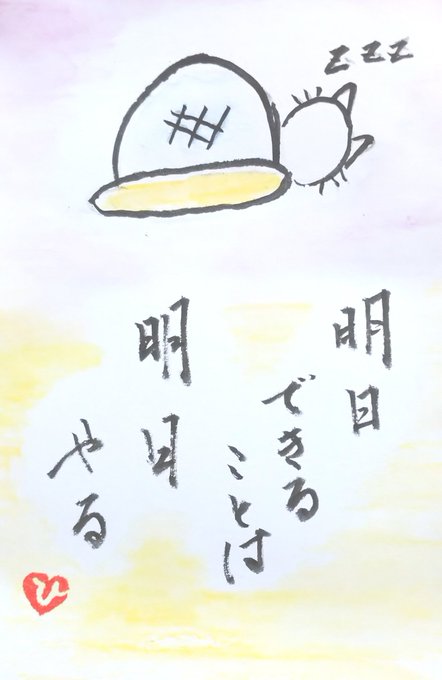 zzz
明日
できる
ことは
明日
やる
ひ